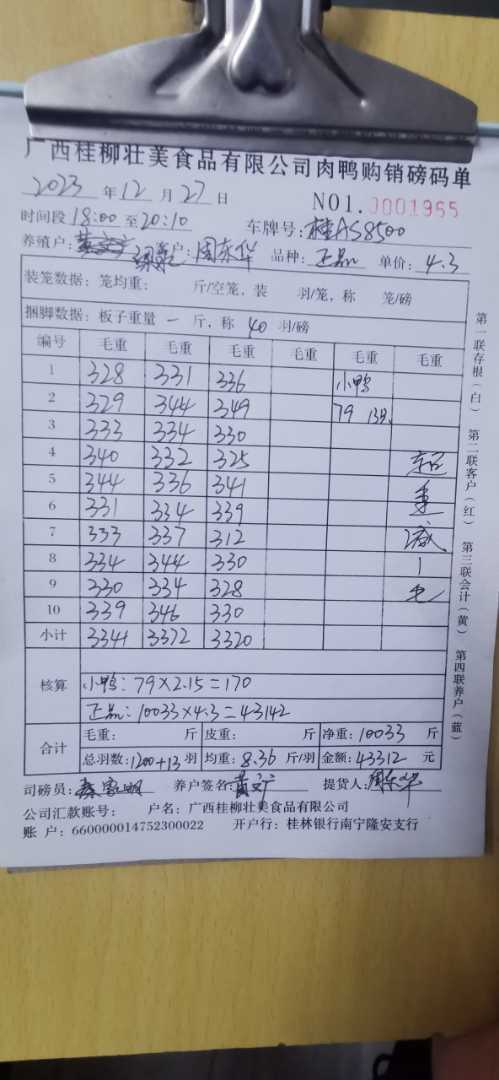 广西桂柳壮美食品有限公司肉鸭购销磅码单
2023 年 12 月 27 日 NO1. 0001955
时间段 18:00 至 20:10 车牌号: 桂AS8500
养殖户: 客户: 周东华 品种: 正品 单价: 4.3
装笼数据: 笼均重: 斤/空笼, 装 羽/笼, 称 笼/磅
捆脚数据: 板子重量 一 斤, 称 40 羽/磅
编号 毛重 毛重 毛重 毛重 毛重 毛重
1 328 331 336 小鸭
2 329 344 349 79 13只
3 333 334 330
4 340 332 325
5 344 336 341 重
6 331 334 339
7 333 337 312 减
8 334 344 330 1
9 330 334 328 毛
10 339 346 330
小计 3341 3372 3320
核算 小鸭: 79×2.15=170
正品: 10033×4.3=43142
合计 毛重: 斤 皮重: 斤 净重: 10033 斤
总羽数: 1200+13 羽 均重: 8.36 斤/羽 金额: 43312 元
司磅员: 养户签名: 提货人: 周东华
公司汇款账号: 户名: 广西桂柳壮美食品有限公司
账 户: 660000014752300022 开户行: 桂林银行南宁隆安支行
第一联存根(白) 第二联客户(红) 第三联会计(黄) 第四联养户(蓝)